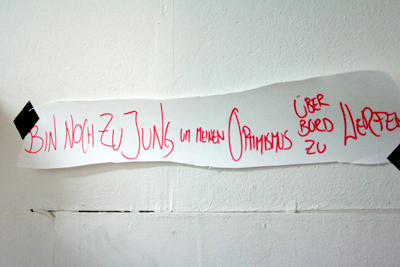 BIN NOCH ZU JUNG UM MEINEN OPTIMISMUS ÜBER BORD ZU WERFEN